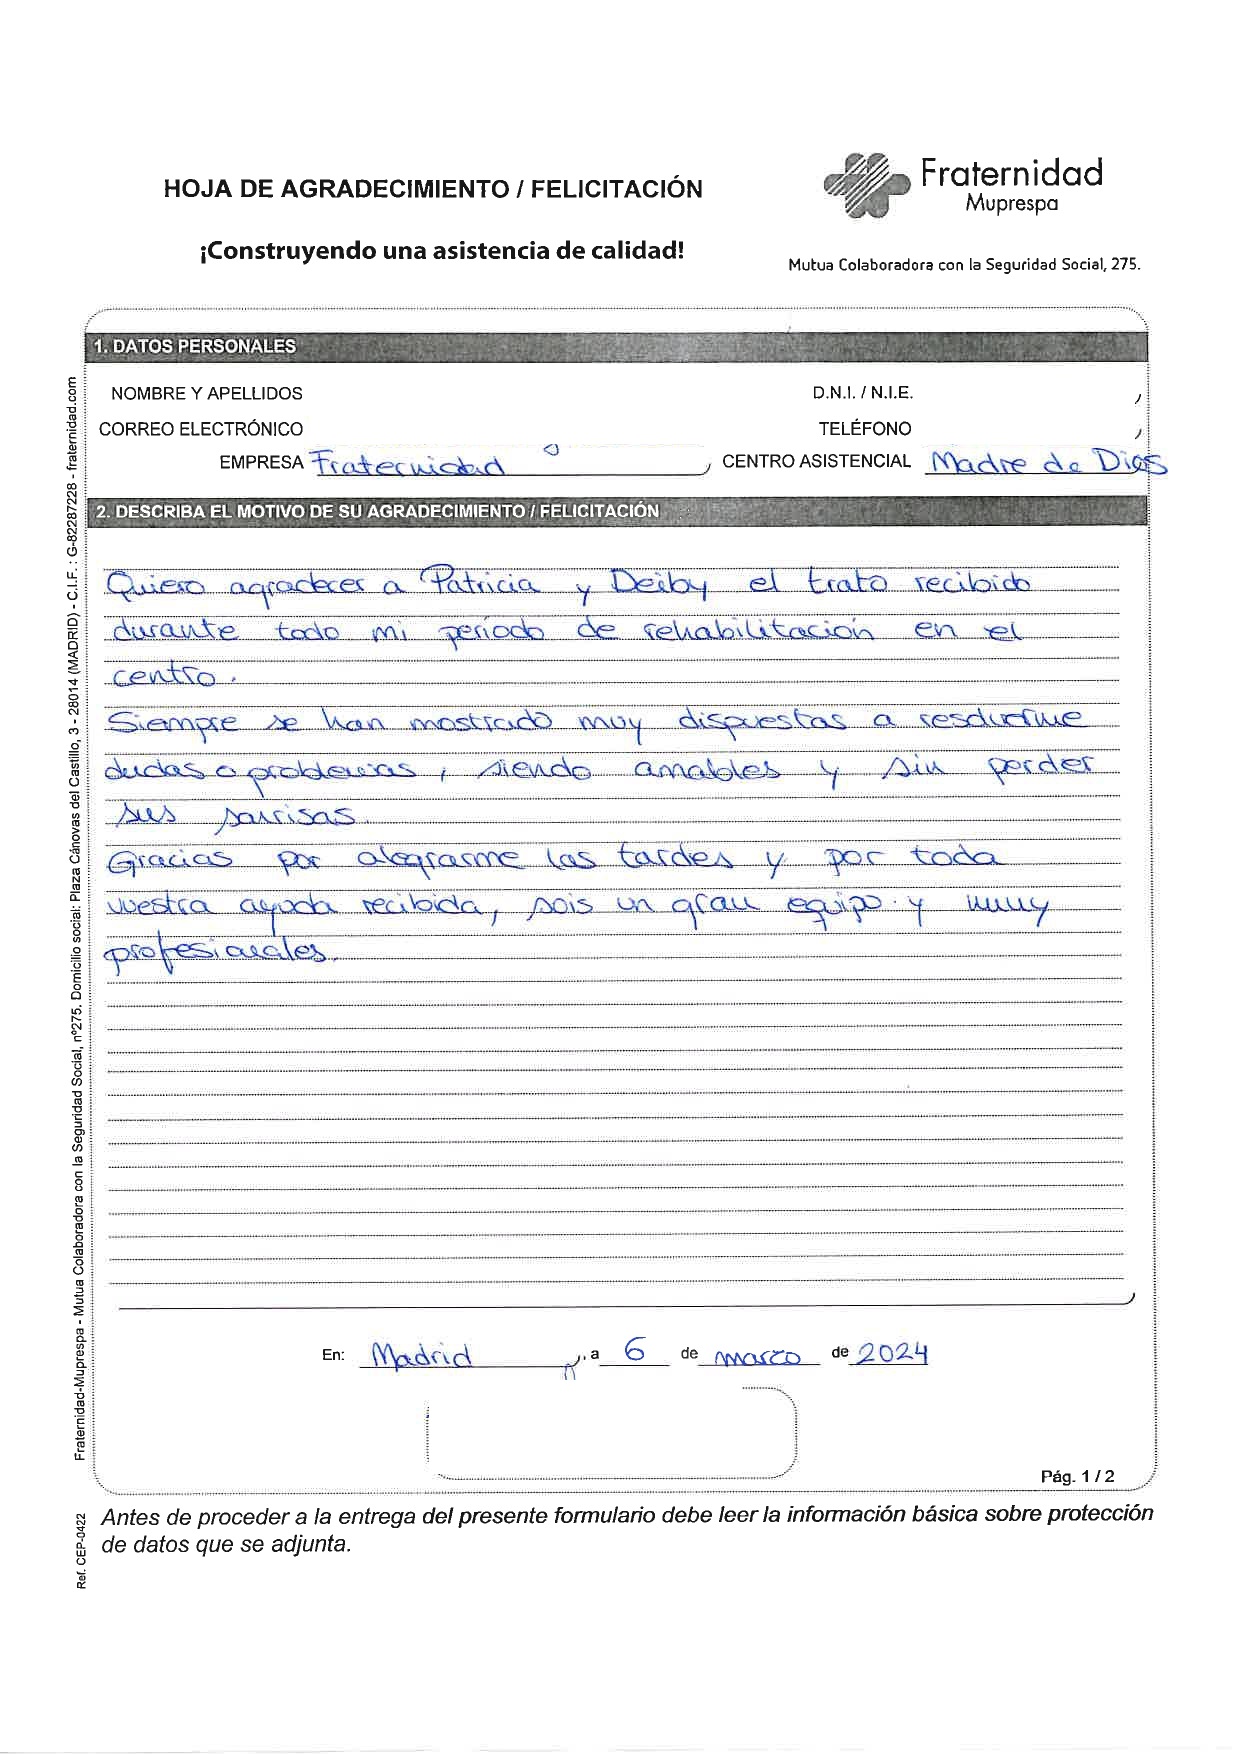 HOJA DE AGRADECIMIENTO / FELICITACIÓN
¡Construyendo una asistencia de calidad!
Fraternidad
Muprespa
Mutua Colaboradora con la Seguridad Social, 275.
1. DATOS PERSONALES
NOMBRE Y APELLIDOS
D.N.I. / N.I.E.
CORREO ELECTRÓNICO
TELÉFONO
EMPRESA Fraternidad
CENTRO ASISTENCIAL Madre de Dios
2. DESCRIBA EL MOTIVO DE SU AGRADECIMIENTO / FELICITACIÓN
Quiero agradecer a Patricia y Deiby el trato recibido
durante todo mi período de rehabilitación en el
centro.
Siempre se han mostrado muy dispuestas a resolverme
dudas o problemas, siendo amables y sin perder
sus sonrisas.
Gracias por alegrarme las tardes y por toda
vuestra ayuda recibida, sois un gran equipo y muy
profesionales.
En: Madrid, a 6 de marzo de 2024
Pág. 1 / 2
Antes de proceder a la entrega del presente formulario debe leer la información básica sobre protección
de datos que se adjunta.
Fraternidad-Muprespa - Mutua Colaboradora con la Seguridad Social, nº275. Domicilio social: Plaza Cánovas del Castillo, 3 - 28014 (MADRID) - C.I.F. : G-82287228 - fraternidad.com
Ref. CEP-0422